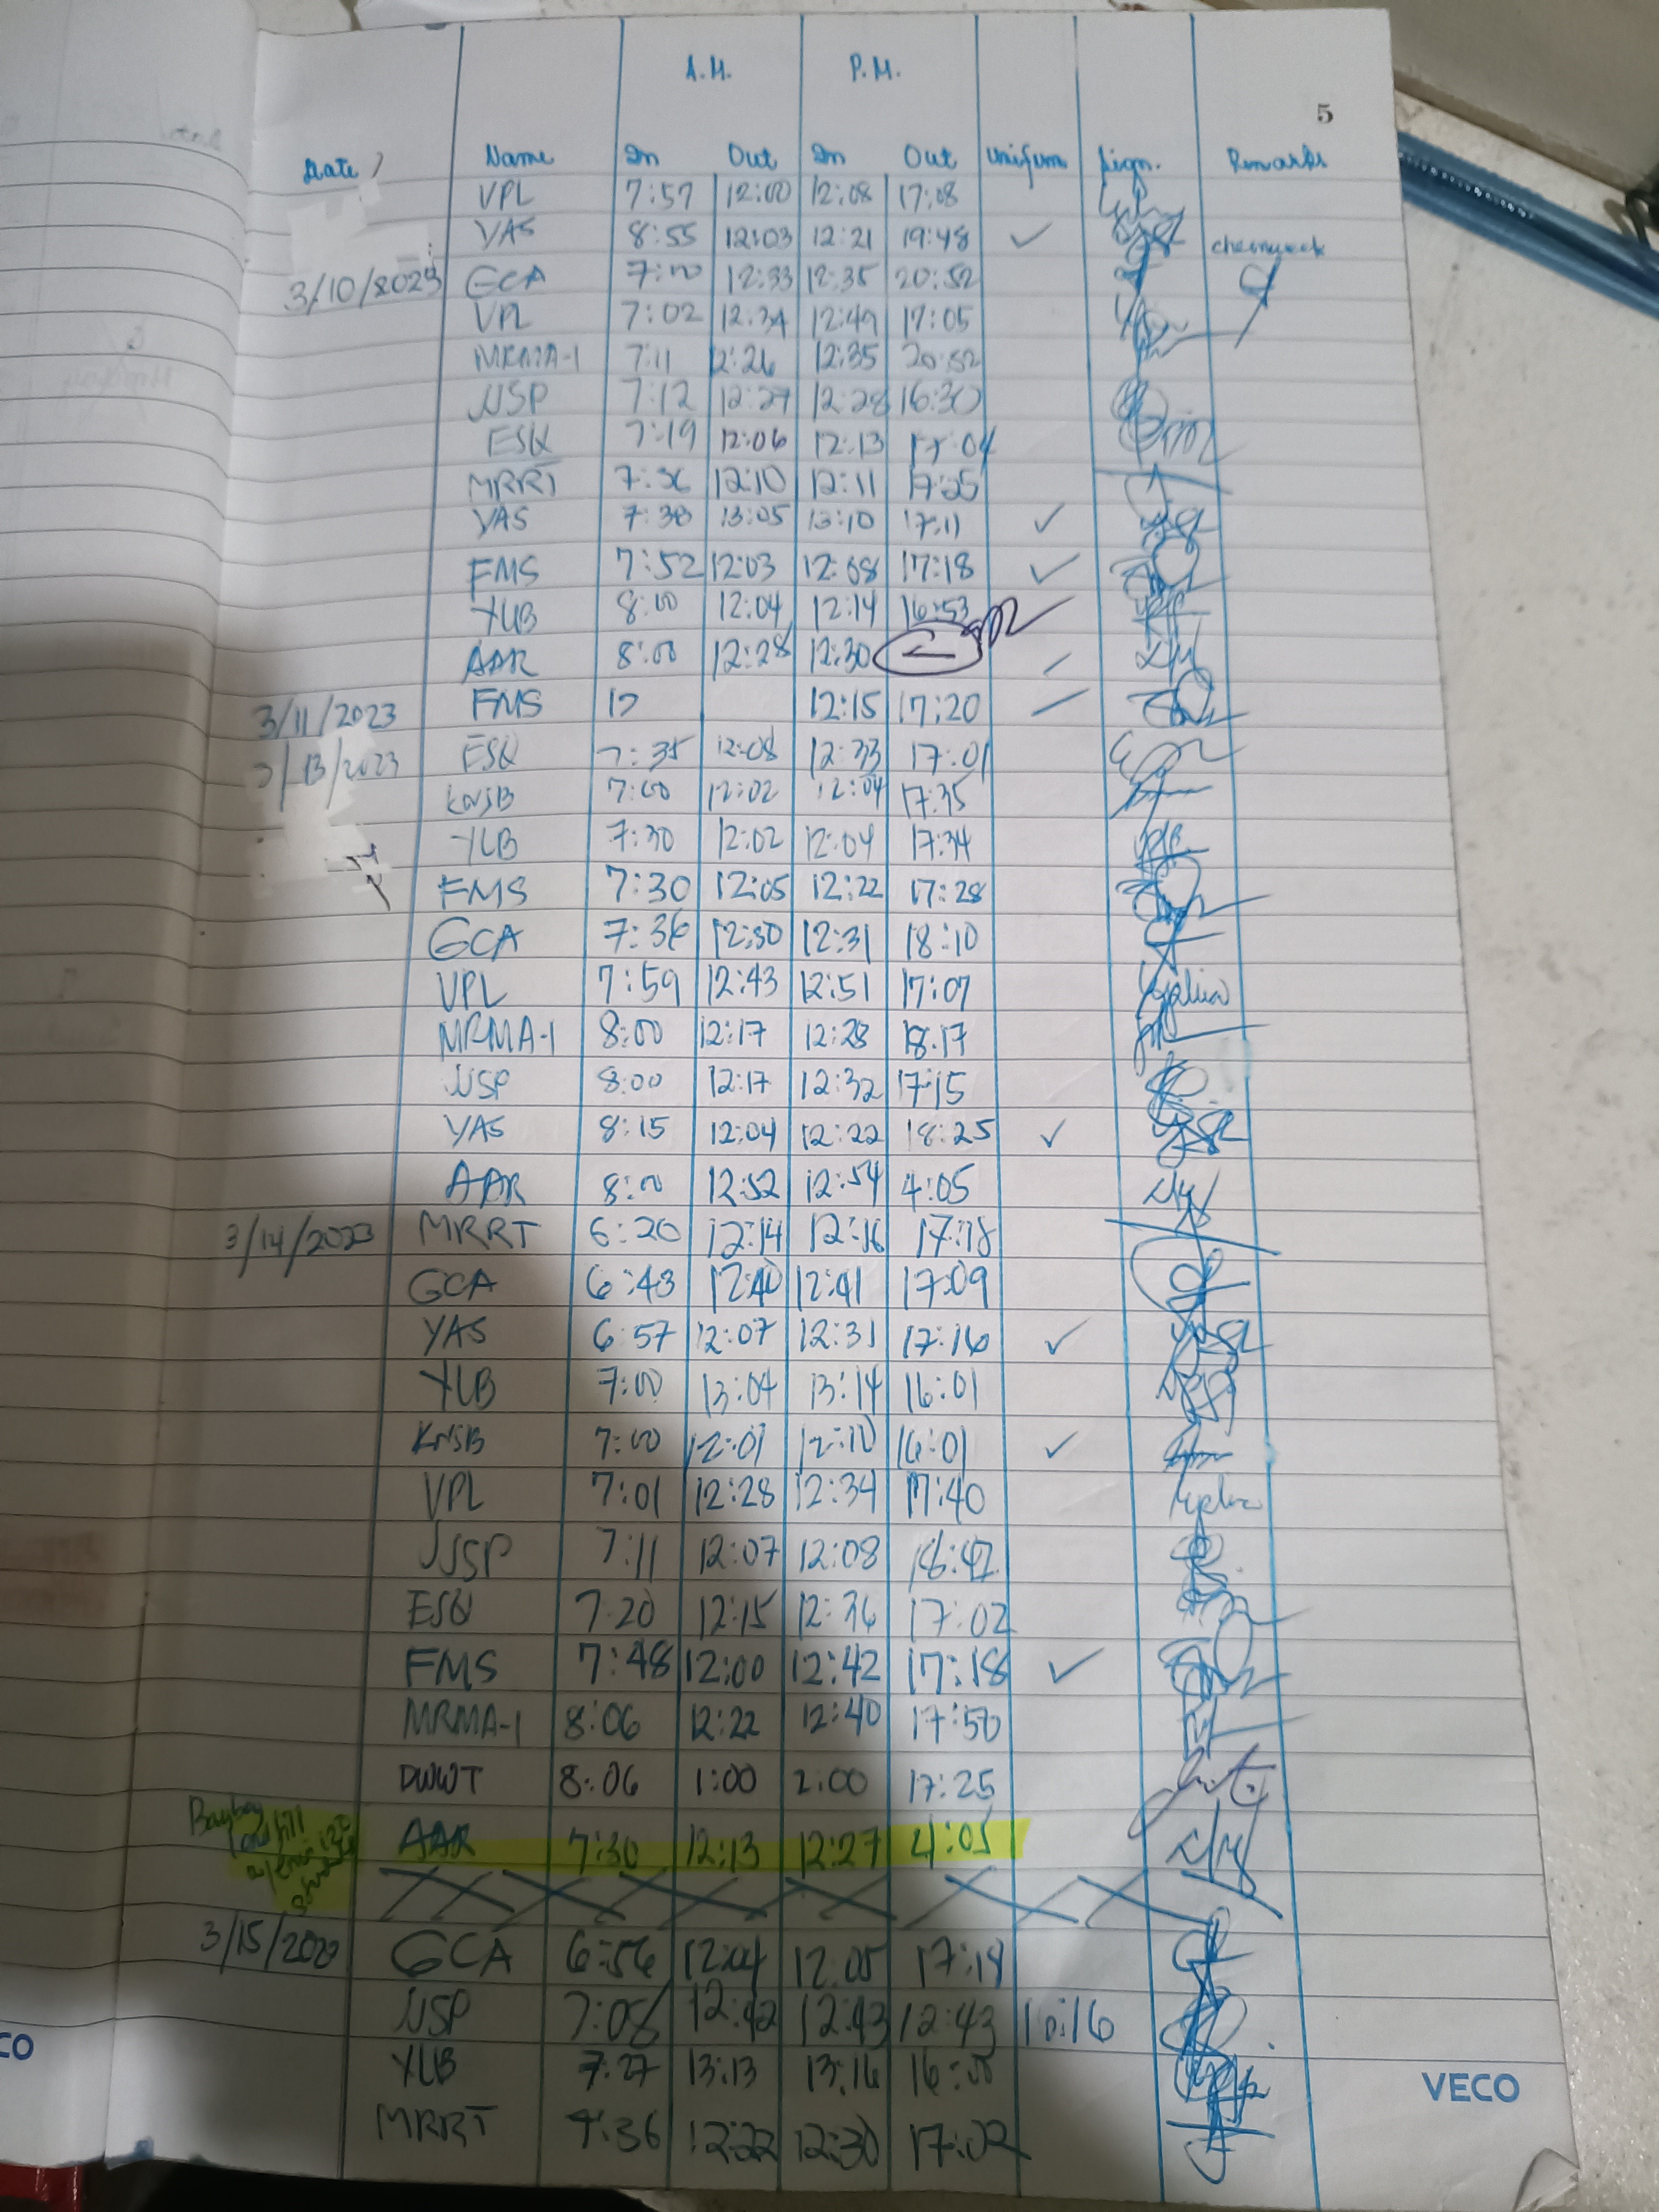 A.M. P.M.
5
Date Name In Out In Out Uniform Sign. Remarks
VPL 7:57 12:00 12:08 17:08
YAS 8:55 12:03 12:21 19:48 ✓
3/10/2023 GCA 7:00 12:33 12:35 20:52
VPL 7:02 12:34 12:49 17:05
MRMA-1 7:11 12:26 12:35 20:52
JJSP 7:12 12:27 12:28 16:30
ESQ 7:19 12:06 12:13 17:04
MRRT 7:36 12:10 12:11 17:25
YAS 7:38 13:05 13:10 17:11 ✓
FMS 7:52 12:03 12:08 17:18 ✓
YLB 8:00 12:04 12:14 16:53
AAR 8:00 12:28 12:30 —
3/11/2023 FMS 12:15 17:20
3/13/2023 ESQ 7:35 12:08 12:33 17:01
KNSB 7:00 12:02 12:04 17:35
YLB 7:30 12:02 12:04 17:34
FMS 7:30 12:05 12:22 17:28
GCA 7:36 12:30 12:31 18:10
VPL 7:59 12:43 12:51 17:07
MRMA-1 8:00 12:17 12:28 18:17
JJSP 8:00 12:17 12:32 17:15
YAS 8:15 12:04 12:22 18:25 ✓
AAR 8:00 12:52 12:54 4:05
3/14/2023 MRRT 6:20 12:14 12:16 17:18
GCA 6:43 12:40 12:41 17:09
YAS 6:57 12:07 12:31 17:16 ✓
YLB 7:00 13:04 13:14 16:01
KNSB 7:00 12:01 12:10 16:01 ✓
VPL 7:01 12:28 12:34 17:40
JJSP 7:11 12:07 12:08 18:42
ESQ 7:20 12:15 12:36 17:02
FMS 7:48 12:00 12:42 17:18 ✓
MRMA-1 8:06 12:22 12:40 17:50
DWWT 8:06 1:00 2:00 17:25
AAR 7:30 12:13 12:27 4:05
3/15/2023 GCA 6:56 12:04 12:05 17:14
JJSP 7:08 12:42 12:43 12:43 16:16
YLB 7:27 13:13 13:16 16:00
MRRT 7:36 12:22 12:30 17:02
VECO